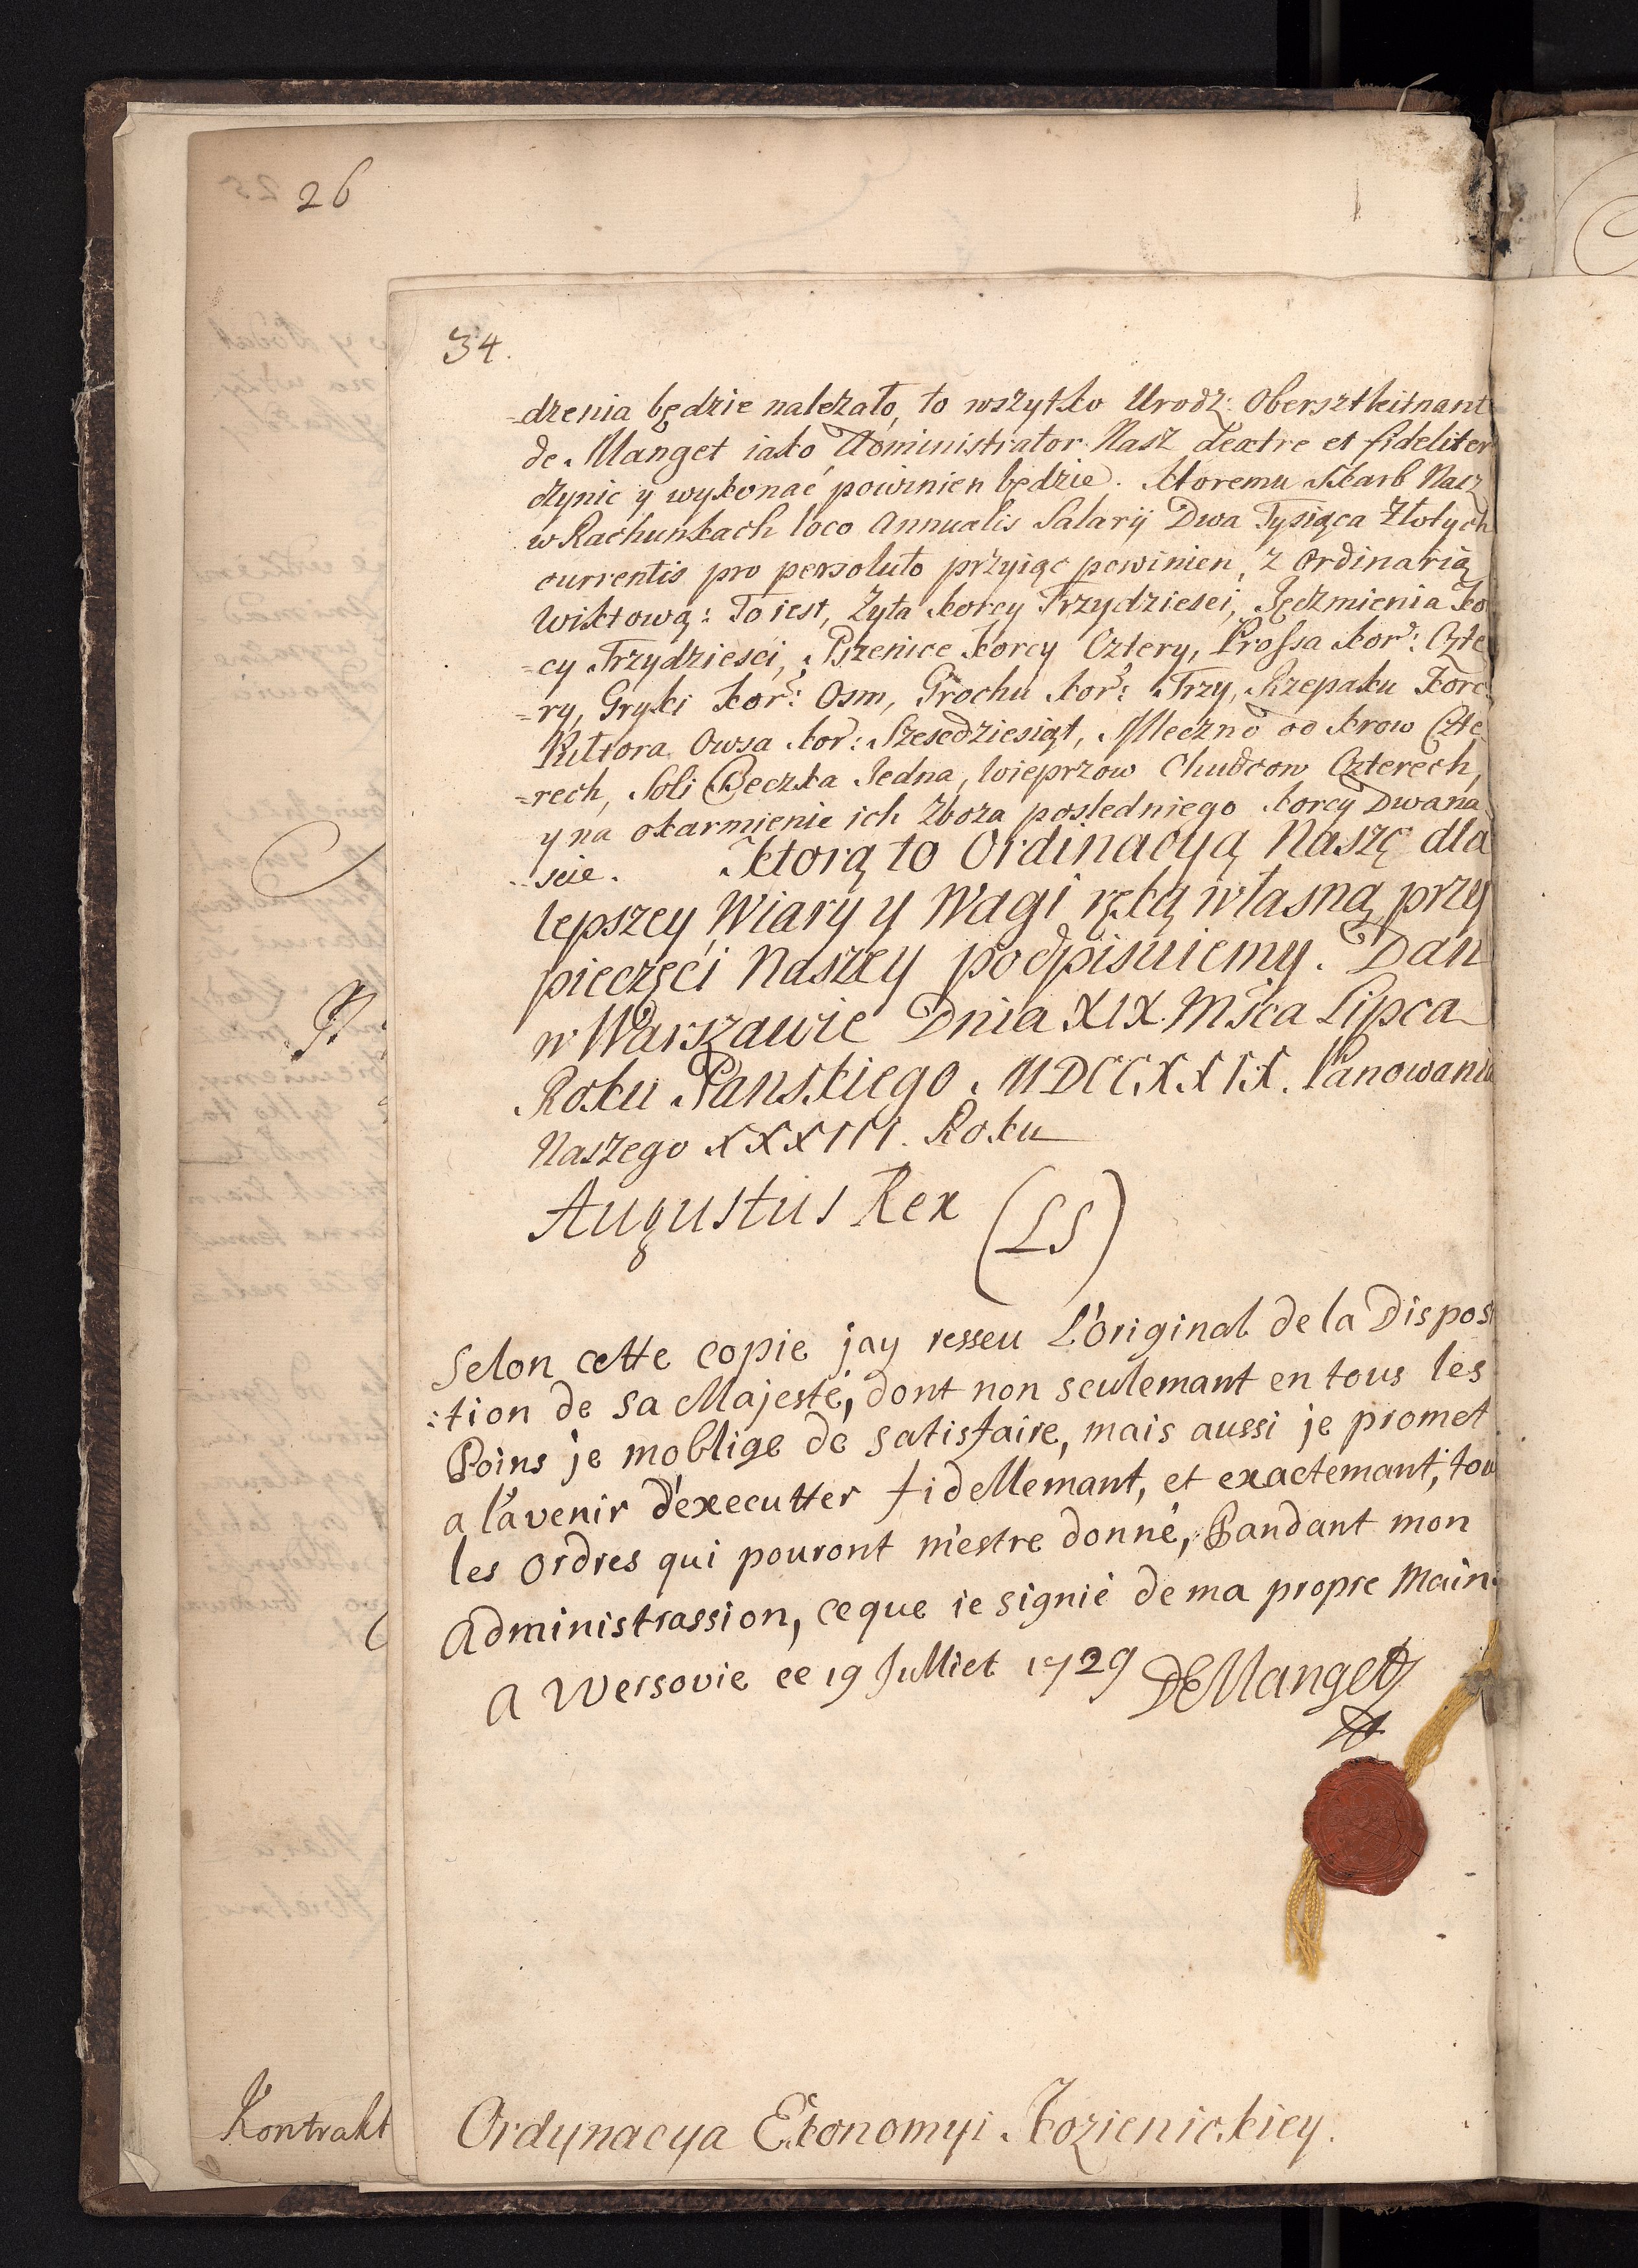 26
34.
-dzenia będzie należało, to wszytko Urodz: Obersztleitnant
de Manget iako Administrator Nasz dextre et fideliter
czynic y wykonać powinien będzie. Ktoremu Skarb Nasz
w Rachunkach loco Annualis Salarij Dwa Tysiąca Złotych
currentis pro persoluto przyiąc powinien, z Ordinarią
Wiktową: To iest, Zyta korcy Trzydziesci, Jęczmienia ko
-cy Trzydziesci, Pszenice korcy Cztery, Prossa kor: Czte
-ry, Gryki kor: Osm, Grochu kor: Trzy, Rzepaku korc
Pułtora Owsa kor: Szescdziesiąt, Mleczno od krow Czte
-rech, Soli Beczka Jedna, Wieprzow Chudcow Czterech,
y na okarmienie ich zboza posledniego korcy Dwana
-scie. Ktorą to Ordinacyą Naszę dla
lepszey Wiary y Wagi ręką własną przy
pieczęci Naszey podpisuiemy. Dan
w Warszawie Dnia XIX. Msca Lipca
Roku Panskiego MDCCXXIX. Panowania
Naszego XXXIII. Roku
Augustus Rex (LS)
Selon cette copie jay resseu L'original de la Disposi
:tion de sa Majesté, dont non seulemant en tous les
Poins je moblige de satisfaire, mais aussi je promet
a l'avenir d'executter fidellemant, et exactemant, tou
les ordres qui pouront m'estre donné, Pandant mon
Administrassion, ce que ie signié de ma propre Main.
A Wersovie ce 19 Julliet 1729 DeManget
Kontrakt
Ordynacya Ekonomyi Kozienickiey.